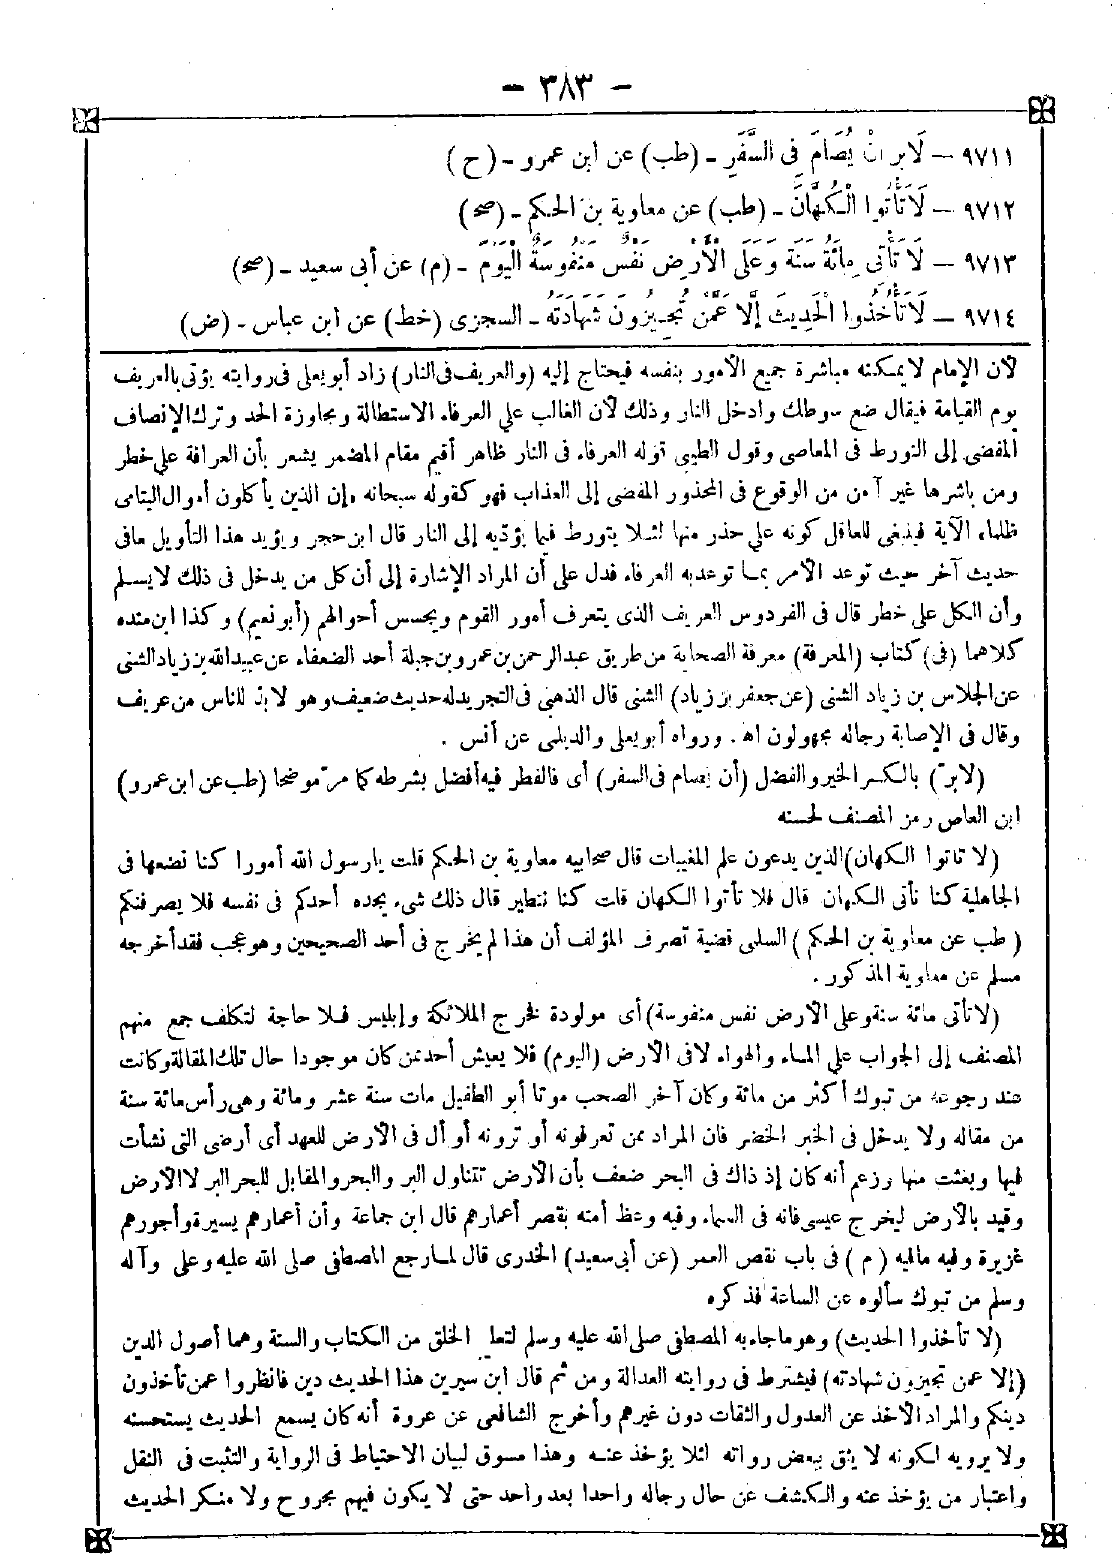 - ٣٨٣ -
٩٧١١ – لَا بِرَّ أَنْ يُصَامَ فِي السَّفَرِ - (طب) عن ابن عمرو - (ح)
٩٧١٢ – لَا تَأْتُوا الْكُهَّانَ - (طب) عن معاوية بن الحكم - (صح)
٩٧١٣ – لَا تَأْتِي مِائَةُ سَنَةٍ وَعَلَى الْأَرْضِ نَفْسٌ مَنْفُوسَةٌ الْيَوْمَ - (م) عن أبي سعيد - (صح)
٩٧١٤ – لَا تَأْخُذُوا الْحَدِيثَ إِلَّا عَمَّنْ تُجِيزُونَ شَهَادَتَهُ - السجزى (خط) عن ابن عباس - (ض)
لأن الإمام لا يمكنه مباشرة جميع الأمور بنفسه فيحتاج إليه (والعريف فى النار) زاد أبو يعلى فى روايته يؤتى بالعريف
يوم القيامة فيقال ضع سوطك وادخل النار وذلك لأن الغالب على العرفاء الاستطالة ومجاوزة الحد وترك الإنصاف
المفضى إلى التورط فى المعاصى وقول الطيبى قوله العرفاء فى النار ظاهر أقيم مقام المضمر يشعر بأن العرافة على خطر
ومن باشرها غير آمن من الوقوع فى المحذور المفضى إلى العذاب فهو كقوله سبحانه ،إن الذين يأكلون أموال اليتامى
ظلما، الآية فينبغى للعاقل كونه على حذر منها لئلا يتورط فيما يؤديه إلى النار قال ابن حجر ويؤيد هذا التأويل ما فى
حديث آخر حيث توعد الأمر بما توعد به العرفاء فدل على أن المراد الإشارة إلى أن كل من يدخل فى ذلك لا يسلم
وأن الكل على خطر قال فى الفردوس العريف الذى يتعرف أمور القوم ويجسس أحوالهم (أبو نعيم) وكذا ابن منده
كلاهما (فى) كتاب (المعرفة) معرفة الصحابة من طريق عبد الرحمن بن عمرو بن جبلة أحد الضعفاء عن عبيد الله بن زياد الشنى
عن الجلاس بن زياد الشنى (عن جعفر بن زياد) الشنى قال الذهبى فى التجريد له حديث ضعيف وهو لا بد للناس من عريف
وقال فى الإصابة رجاله مجهولون اهـ. ورواه أبو يعلى والديلمى عن أنس .
(لا برّ) بالكسر الخير والفضل (أن يصام فى السفر) أى فالفطر فيه أفضل بشرطه كما مرّ موضحا (طب عن ابن عمرو)
ابن العاص رمز المصنف لحسنه
(لا تأتوا الكهان) الذين يدعون علم المغيبات قال صحابيه معاوية بن الحكم قلت يارسول الله أمورا كنا نصنعها فى
الجاهلية كنا نأتى الكهان قال فلا تأتوا الكهان قلت كنا نتطير قال ذلك شىء يجده أحدكم فى نفسه فلا يصرفنكم
(طب عن معاوية بن الحكم) السلمى قضية تصرف المؤلف أن هذا لم يخرج فى أحد الصحيحين وهو عجب فقد أخرجه
مسلم عن معاوية المذكور .
(لا تأتى مائة سنة وعلى الأرض نفس منفوسة) أى مولودة فخرج الملائكة وإبليس فلا حاجة لتكلف جمع منهم
المصنف إلى الجواب على الماء والهواء لا فى الأرض (اليوم) فلا يعيش أحد ممن كان موجودا حال تلك المقالة وكانت
عند رجوعه من تبوك أكثر من مائة وكان آخر الصحب موتا أبو الطفيل مات سنة عشر ومائة وهى رأس مائة سنة
من مقاله ولا يدخل فى الخبر الخضر فان المراد ممن تعرفونه أو ترونه أو أل فى الأرض للعهد أى أرضى التى نشأت
فيها وبعثت منها وزعم أنه كان إذ ذاك فى البحر ضعف بأن الأرض تتناول البر والبحر والمقابل للبحر البر لا الأرض
وقيد بالأرض ليخرج عيسى فانه فى السماء وفيه وعظ أمته بقصر أعمارهم قال ابن جماعة وأن أعمارهم يسيرة وأجورهم
غزيرة وفيه ما فيه (م) فى باب نقص العمر (عن أبى سعيد) الخدرى قال لما رجع المصطفى صلى الله عليه وعلى وآله
وسلم من تبوك سألوه عن الساعة فذكره
(لا تأخذوا الحديث) وهو ما جاء به المصطفى صلى الله عليه وسلم لتعليم الخلق من الكتاب والسنة وهما أصول الدين
(إلا عمن تجيزون شهادته) فيشترط فى روايته العدالة ومن ثم قال ابن سيرين هذا الحديث دين فانظروا عمن تأخذون
دينكم والمراد الأخذ عن العدول والثقات دون غيرهم وأخرج الشافعى عن عروة أنه كان يسمع الحديث يستحسنه
ولا يرويه لكونه لا يثق ببعض رواته لئلا يؤخذ عنه وهذا مسوق لبيان الاحتياط فى الرواية والتثبت فى النقل
واعتبار من يؤخذ عنه والكشف عن حال رجاله واحدا بعد واحد حتى لا يكون فيهم مجروح ولا منكر الحديث